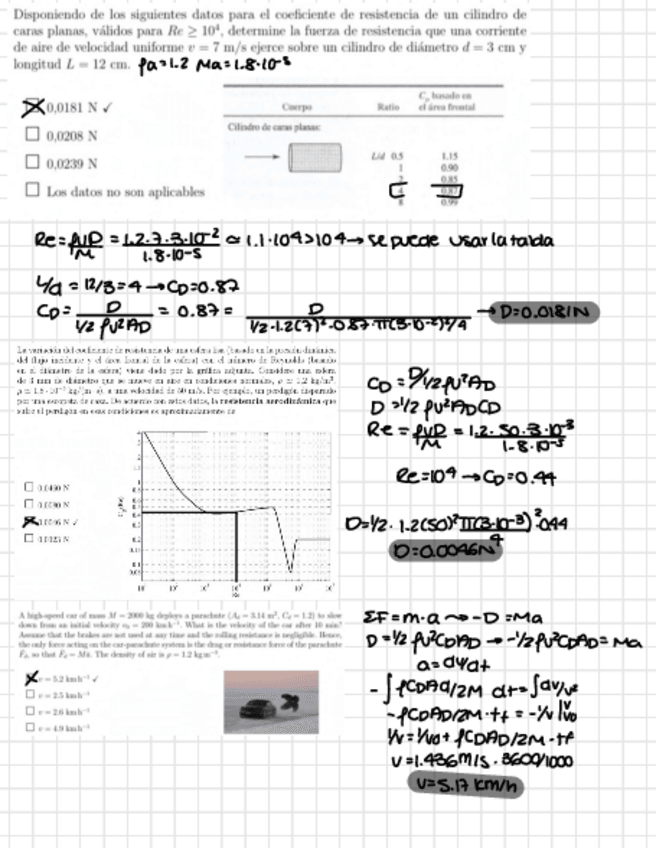 Disponiendo de los siguientes datos para el coeficiente de resistencia de un cilindro de
caras planas, válidos para Re ≥ 10⁴, determine la fuerza de resistencia que una corriente
de aire de velocidad uniforme v = 7 m/s ejerce sobre un cilindro de diámetro d = 3 cm y
longitud L = 12 cm. ρa=1.2 Ma=1.8·10⁻⁵
0,0181 N ✓
0,0208 N
0,0239 N
Los datos no son aplicables
Cuerpo Ratio C_D basado en el área frontal
Cilindro de caras planas:
L/d 0.5 1.15
1 0.90
2 0.85
4 0.87
8 0.99
Re = ρvD/M = 1.2·7·3·10⁻²/1.8·10⁻⁵ ≃ 1.1·104>104 → se puede usar la tabla
L/d = 12/3 = 4 → CD=0.87
CD = D/(1/2 ρv²AD) = 0.87 = D/(1/2·1.2(7)²·0.87·π(3·10⁻²)²/4) → D=0.0181N
La variación del coeficiente de resistencia de una esfera lisa (basado en la presión dinámica
del flujo incidente y el área frontal de la esfera) con el número de Reynolds (basado
en el diámetro de la esfera) viene dado por la gráfica adjunta. Considere una esfera
de 3 mm de diámetro que se mueve en aire en condiciones normales, ρ ≃ 1,2 kg/m³,
μ ≃ 1,8 · 10⁻⁵ kg/(m · s), a una velocidad de 50 m/s. Por ejemplo, un perdigón disparado
por una escopeta de caza. De acuerdo con estos datos, la resistencia aerodinámica que
sufre el perdigón en esas condiciones es aproximadamente de
CD = D/1/2 ρv²AD
D = 1/2 ρv²ADCD
Re = ρvD/M = 1.2·50·3·10⁻³/1.8·10⁻⁵
Re=10⁴ → CD=0.44
D=1/2·1.2(50)²π(3·10⁻³)²/4·044
D=0.0046N
A high-speed car of mass M = 2000 kg deploys a parachute (A_d = 3.14 m², C_d = 1.2) to slow
down from an initial velocity v₀ = 200 km h⁻¹. What is the velocity of the car after 10 min?
Assume that the brakes are not used at any time and the rolling resistance is negligible. Hence,
the only force acting on the car-parachute system is the drag or resistance force of the parachute
F_d, so that F_d = Ma. The density of air is ρ = 1.2 kg m⁻³.
v = 5.2 km h⁻¹ ✓
v = 2.5 km h⁻¹
v = 2.6 km h⁻¹
v = 4.9 km h⁻¹
ΣF=m·a → -D=Ma
D=1/2 ρv²CDAD → -1/2ρv²CDAD=Ma
a=dv/dt
-∫ρCDAD/2M dt=∫dv/v²
-ρCDAD/2M·tf = -1/v |v v0
1/v=1/v0+ρCDAD/2M·tf
v=1.436m/s·3600/1000
v=5.17 km/h